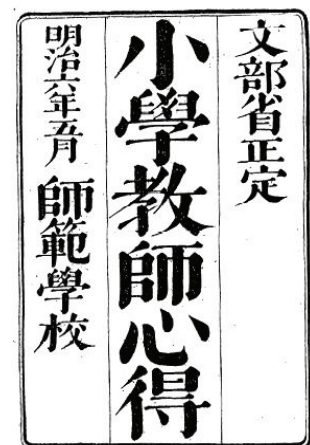 文部省正定
小學教師心得
明治六年五月 師範學校